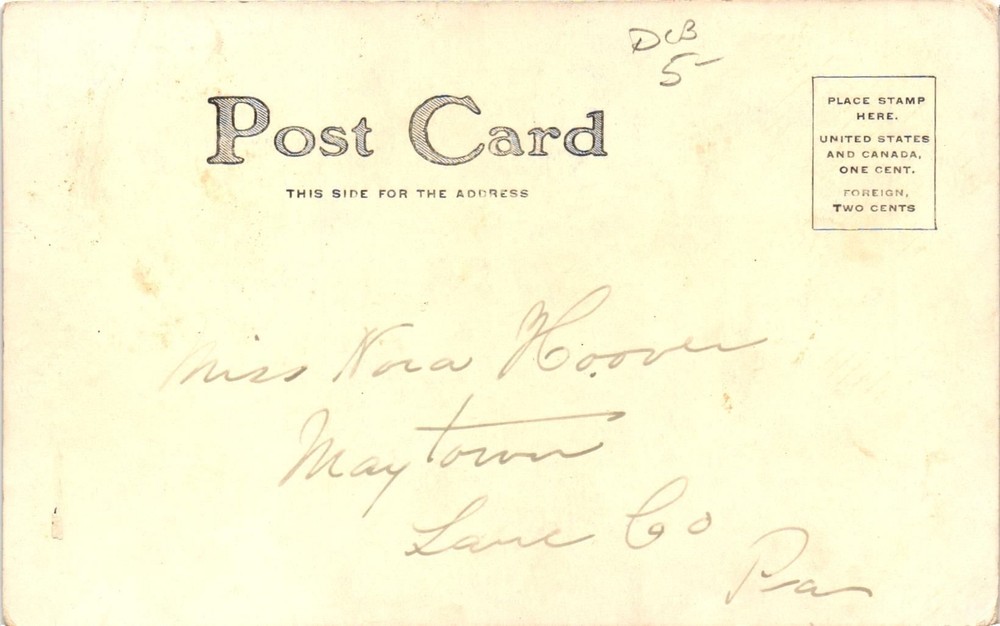 DCB
5-
Post Card
THIS SIDE FOR THE ADDRESS
PLACE STAMP
HERE.
UNITED STATES
AND CANADA,
ONE CENT.
FOREIGN,
TWO CENTS
Miss Nora Hoover
Maytown
Lanc Co
Pa